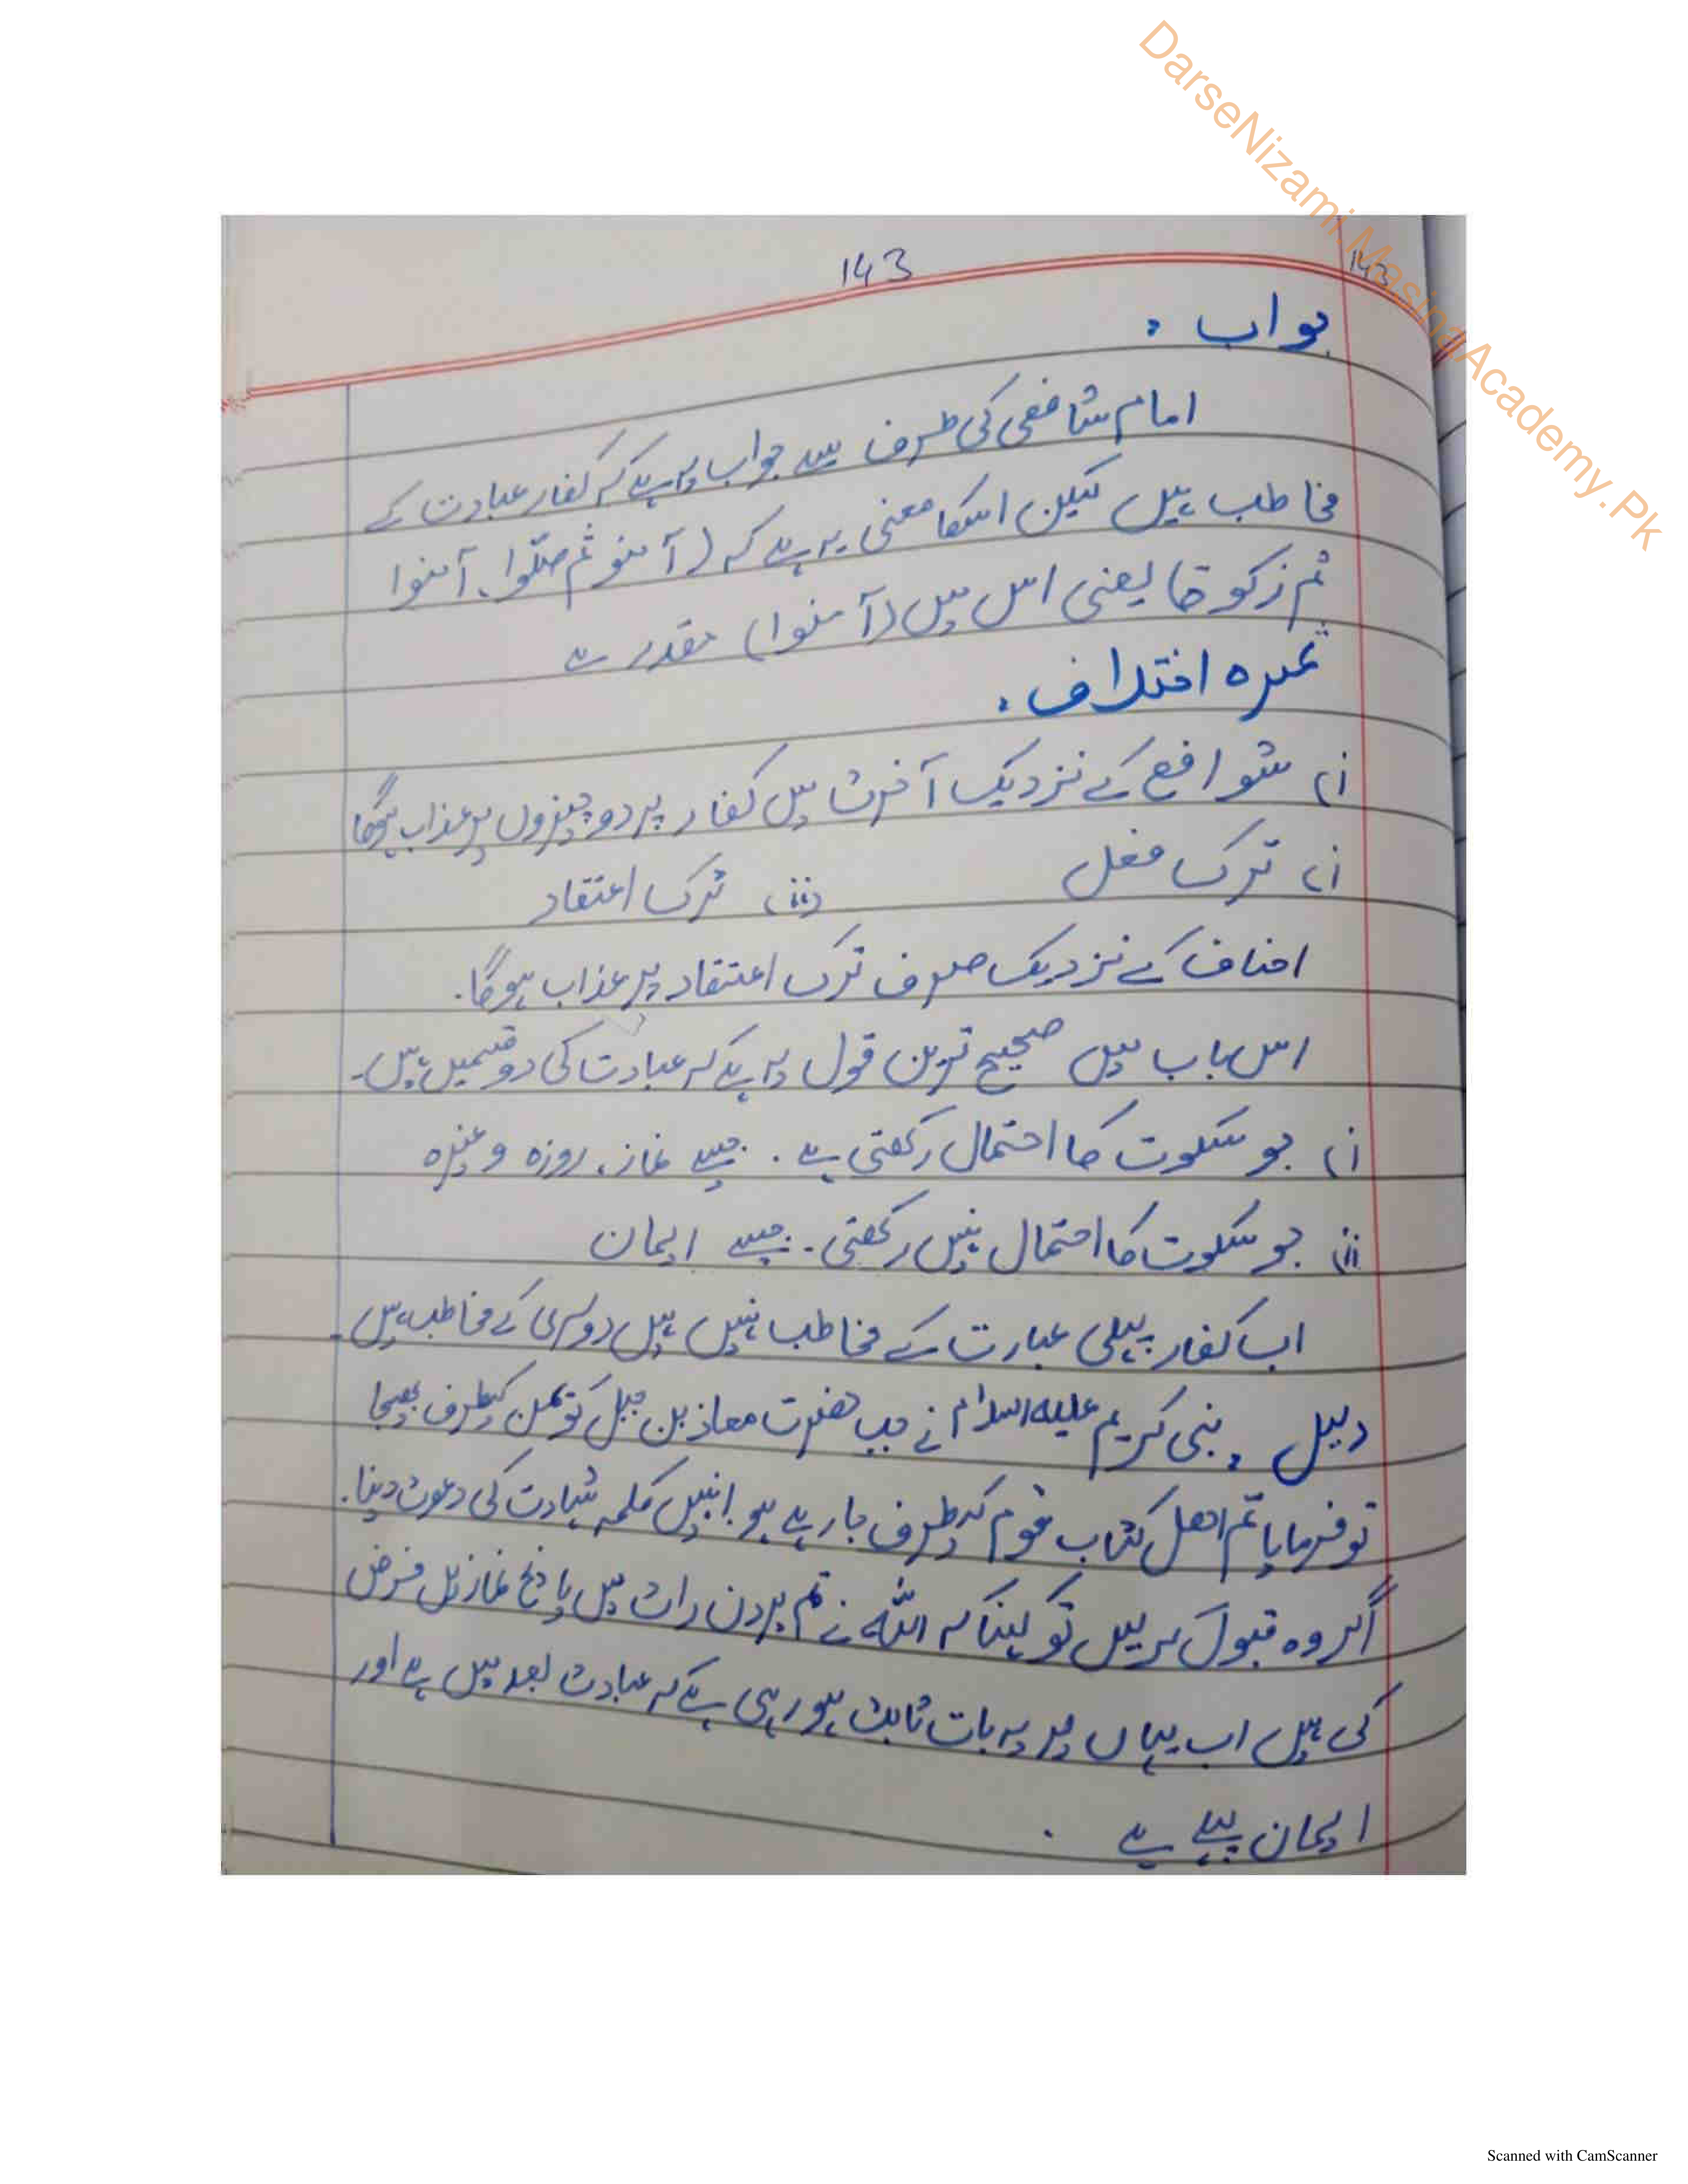 DarseNizami MasingAcademy.Pk
143
143
جواب :
امام شافعی کی طرف سے جواب یہ ہے کہ کفار عبادت کے
مخاطب ہیں لیکن اسکا معنی یہ ہے کہ (آمنو ثم صلّوا، آمنوا
ثم زکوۃ) یعنی اس میں (آمنوا) مقدر ہے
ثمرہ اختلاف :
(i) شوافع کے نزدیک آخرت میں کفار پر دو چیزوں پر عذاب ہوگا
(i) ترک فعل (ii) ترک اعتقاد
احناف کے نزدیک صرف ترک اعتقاد پر عذاب ہوگا۔
اس باب میں صحیح ترین قول یہ ہے کہ عبادت کی دو قسمیں ہیں۔
(i) جو سکوت کا احتمال رکھتی ہے ۔ جیسے نماز، روزہ وغیرہ
(ii) جو سکوت کا احتمال نہیں رکھتی۔ جیسے ایمان
اب کفار پہلی عبارت کے مخاطب نہیں ہیں دوسری کے مخاطب ہیں۔
دلیل : نبی کریم علیہ السلام نے جب حضرت معاذ بن جبل کو یمن کیطرف بھیجا
تو فرمایا تم اھل کتاب قوم کیطرف جا رہے ہو انہیں کلمہ شہادت کی دعوت دینا۔
اگر وہ قبول کر لیں تو کہنا کہ اللہ نے تم پر دن رات میں پانچ نمازیں فرض
کی ہیں اب یہاں پر یہ بات ثابت ہو رہی ہے کہ عبادت بعد میں ہے اور
ایمان پہلے ہے ۔
Scanned with CamScanner